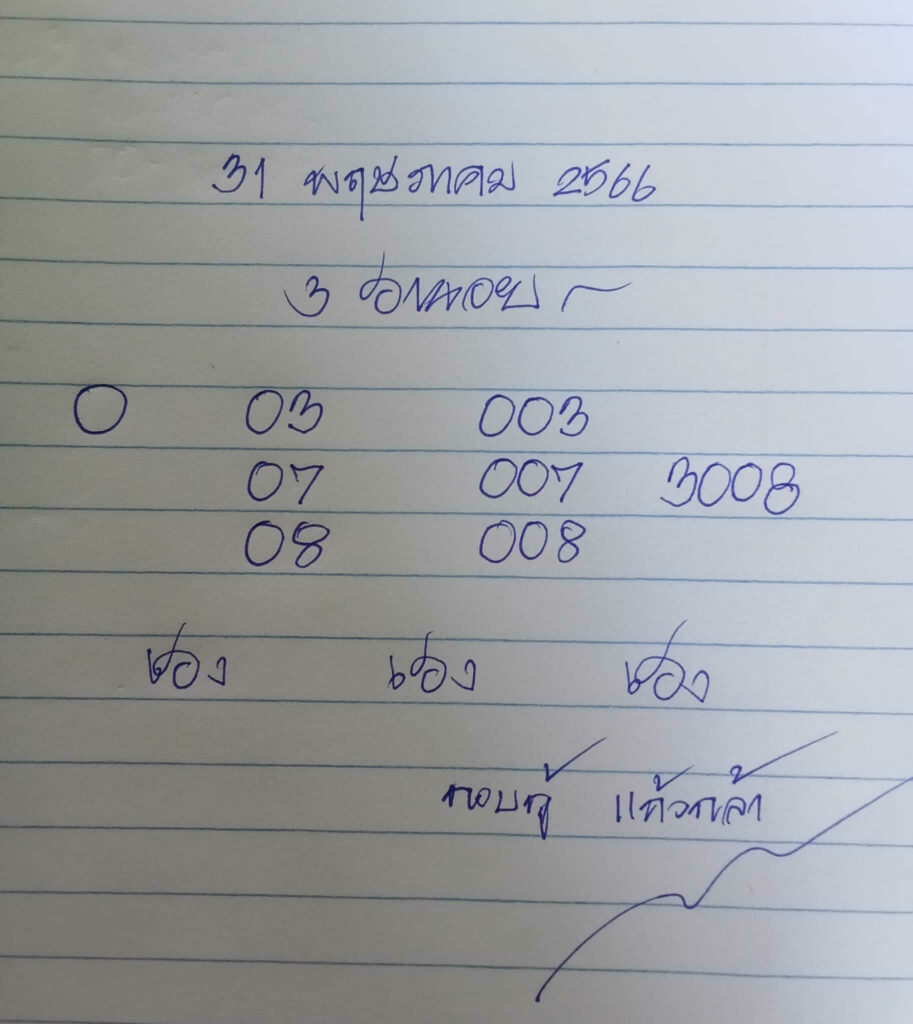 31 พฤษภาคม 2566
3 ช่องหอย
0 03 003
07 007 3008
08 008
ช่อง ช่อง ช่อง
กอบกู้ แก้วกล้า